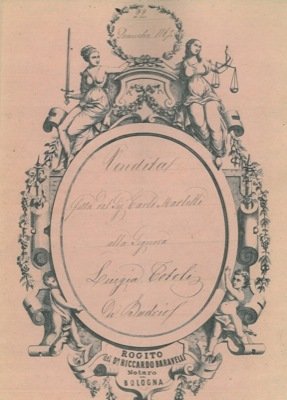 22
Vendita
fatta dal Sig. Carlo Martelli
alla Signora
Luigia
Di Budrio
ROGITO
del Dr. RICCARDO BARAVELLI
Notaro
BOLOGNA